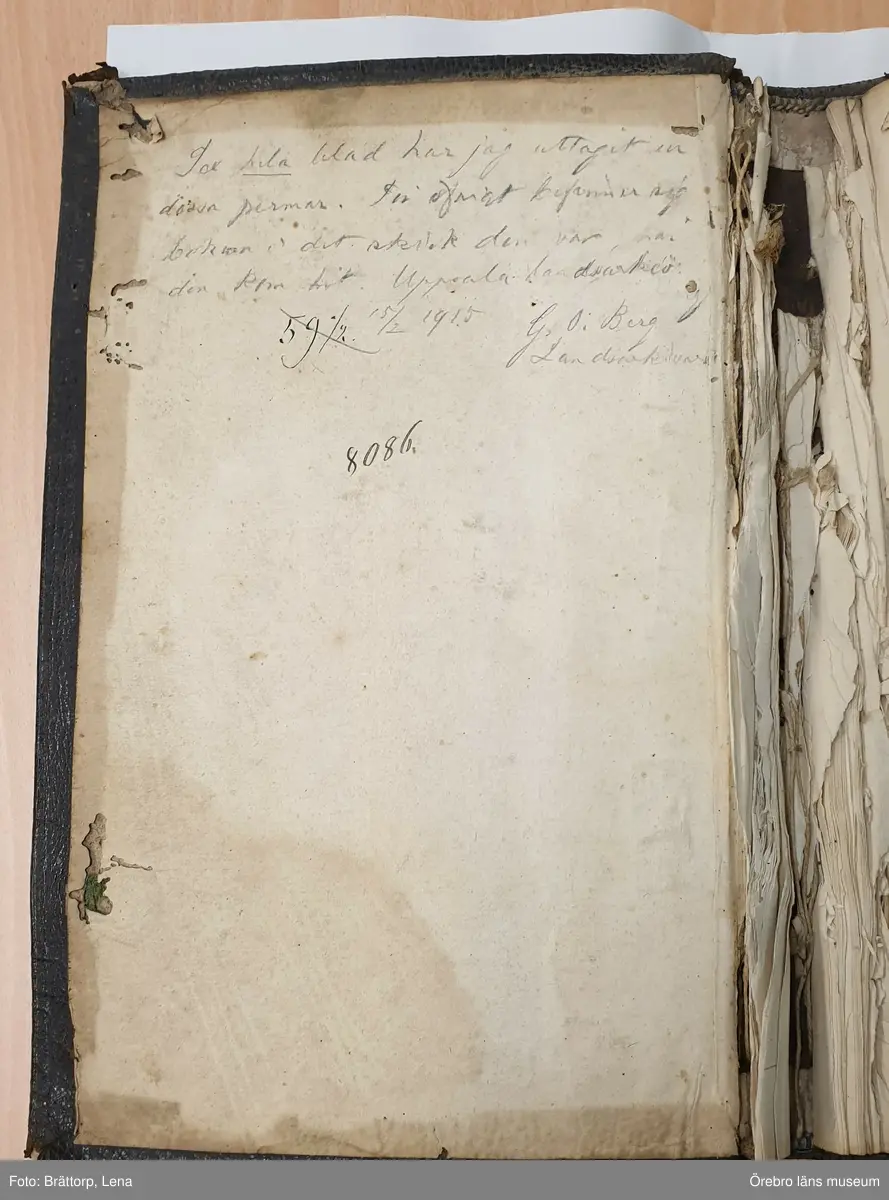 Sex hela blad har jag uttagit ur
dessa permar. För öfrigt befinner sig
boken i det skick den var, när
den kom hit. Uppsala landsarkiv
59 1/2. 15/2 1915 G. O. Berg
Landsarkivarie
8086.
Foto: Brättorp, Lena
Örebro läns museum